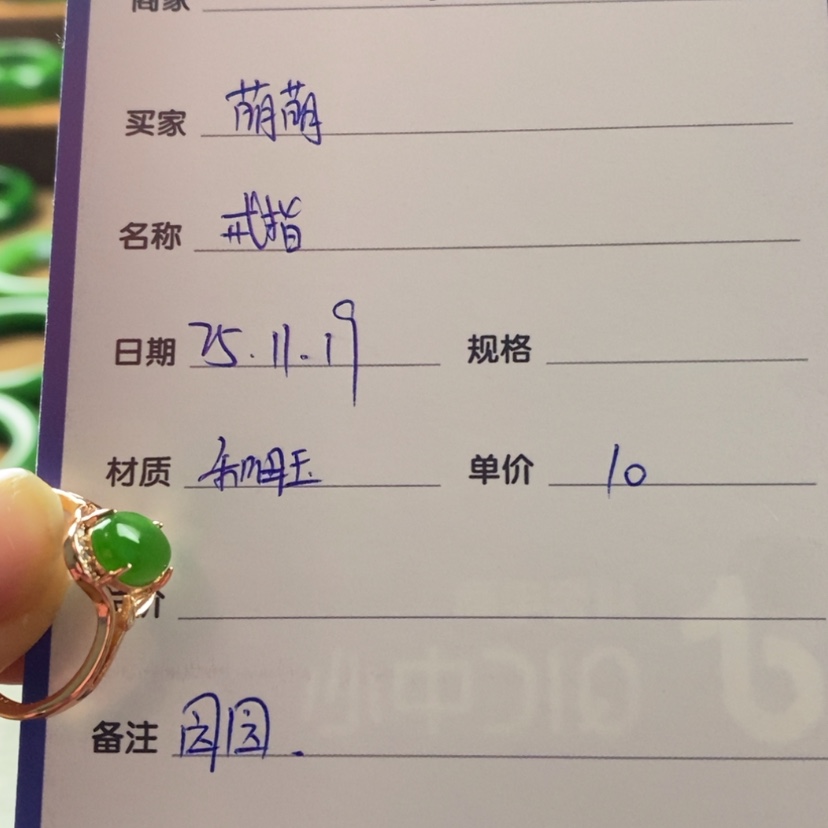 商家
买家 萌萌
名称 戒指
日期 25.11.19 规格
材质 和田玉 单价 10
备注
QIC中心